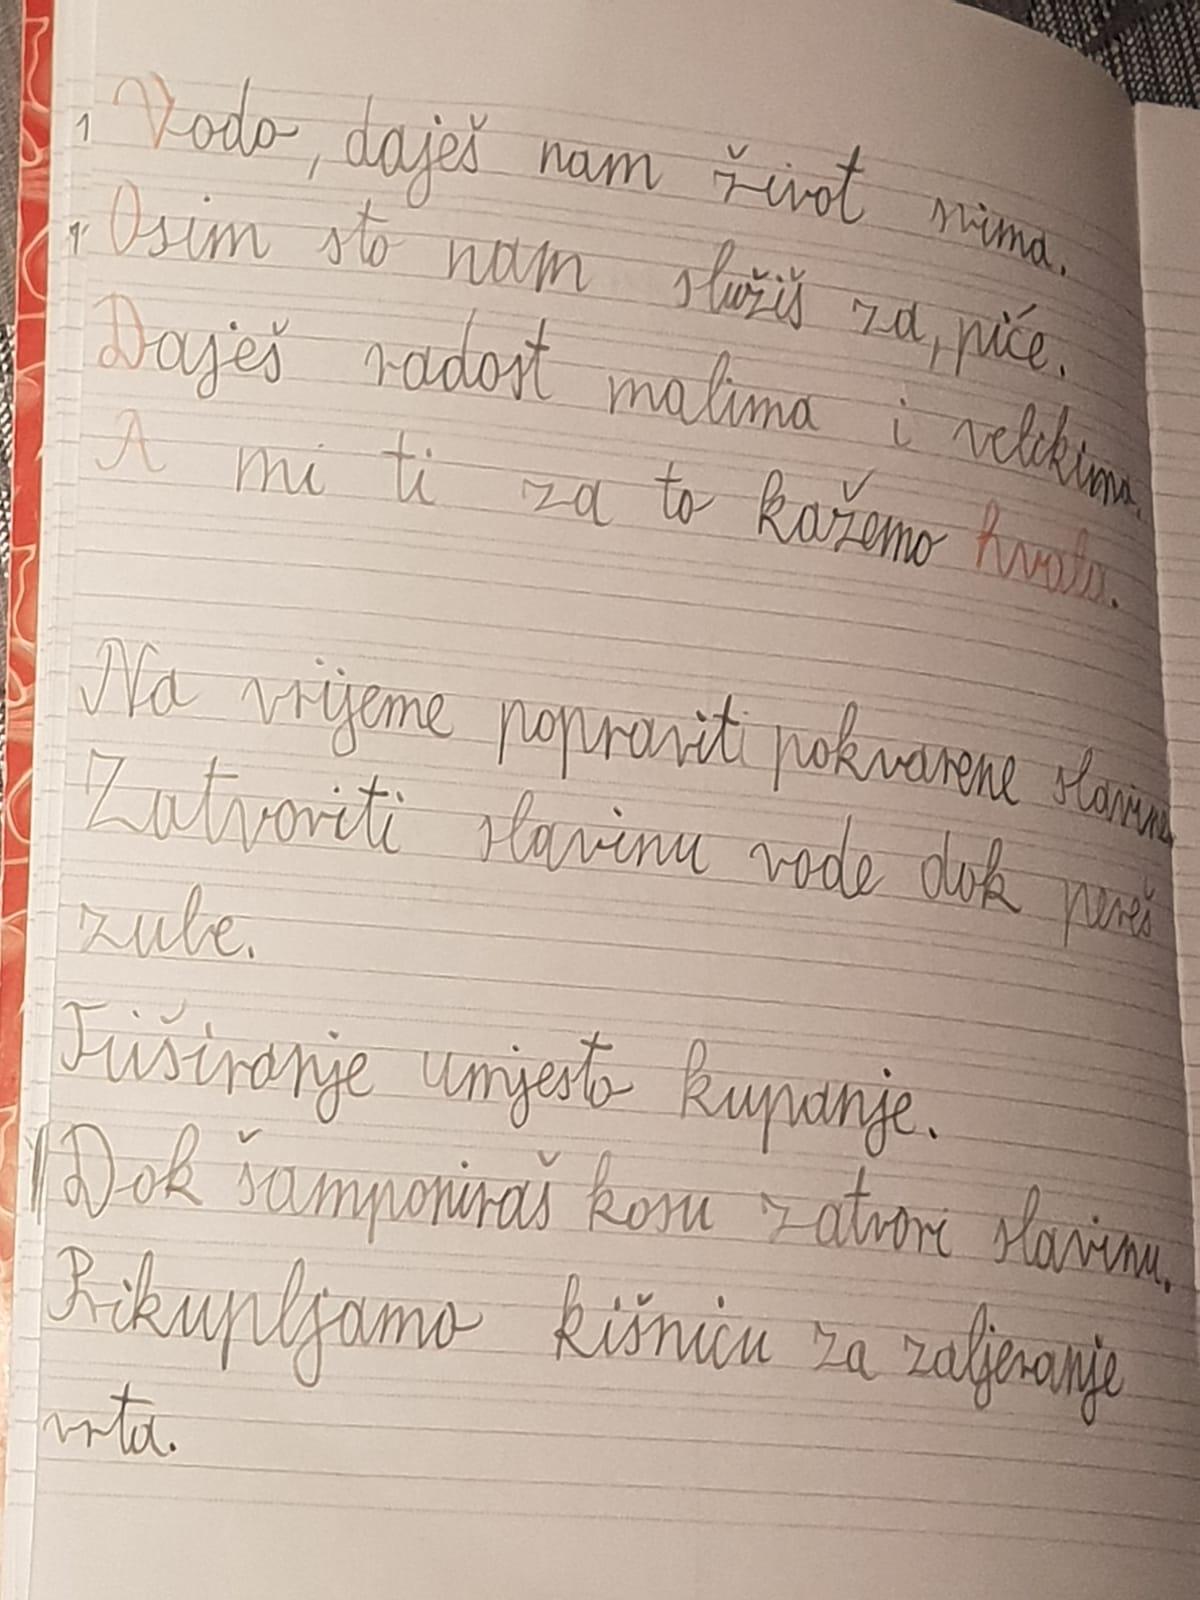 1 Vodo, daješ nam život svima.
1. Osim sto nam služiš za, piće.
Daješ radost malima i velikima.
A mi ti za to kažemo hvala.
Na vrijeme popraviti pokvarene slavine,
Zatvoriti slavinu vode dok pereš
zube.
Tuširanje umjesto kupanje.
Dok šamponiraš kosu zatvori slavinu.
Prikupljamo kišnicu za zaljeranje
vrta.